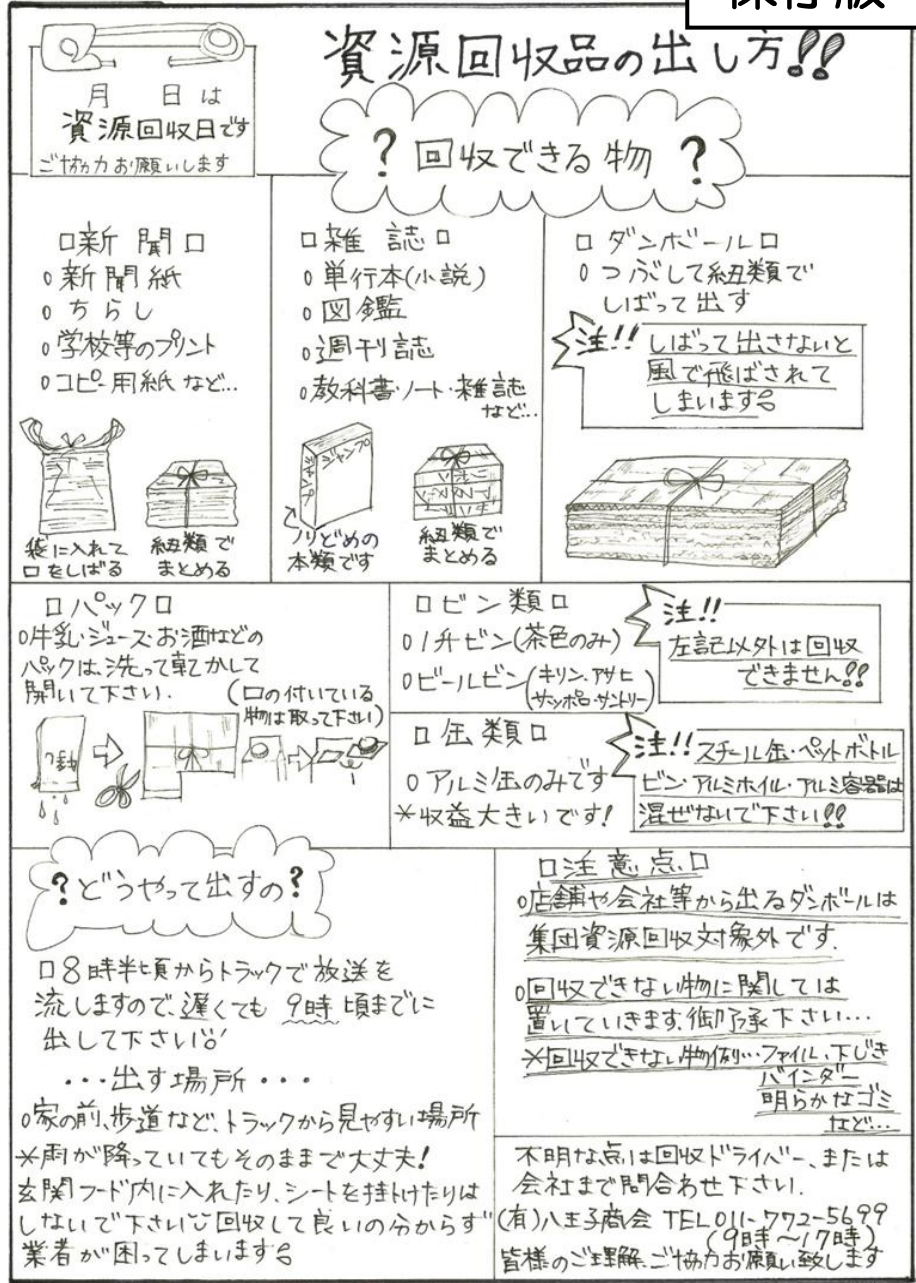 保存版
資源回収品の出し方!!
月　日は
資源回収日です
ご協力お願いします
?回収できる物?
□新聞□
○新聞紙
○ちらし
○学校等のプリント
○コピー用紙など…
袋に入れて
口をしばる
紐類で
まとめる
□雑誌□
○単行本(小説)
○図鑑
○週刊誌
○教科書・ノート・雑誌
など…
ジャンプ
ジャンプ
ノリどめの
本類です
紐類で
まとめる
□ダンボール□
○つぶして紐類で
しばって出す
注!!しばって出さないと
風で飛ばされて
しまいます。
□パック□
○牛乳・ジュース・お酒などの
パックは、洗って乾かして
開いて下さい.
(口の付いている
物は取って下さい)
□ビン類□
○1升ビン(茶色のみ)
○ビールビン(キリン・アサヒ
サッポロ・サントリー)
注!!
左記以外は回収
できません!!
□缶類□
○アルミ缶のみです
*収益大きいです!
注!!スチール缶・ペットボトル
ビン・アルミホイル・アルミ容器は
混ぜないで下さい!!
?どうやって出すの?
□8時半頃からトラックで放送を
流しますので、遅くても 9時頃までに
出して下さい
・・・出す場所・・・
○家の前、歩道など、トラックから見やすい場所
*雨が降っていてもそのままで大丈夫!
玄関フード内に入れたり、シートを掛けたりは
しないで下さい 回収して良いの分からず
業者が困ってしまいます。
□注意点□
○店舗や会社等から出るダンボールは
集団資源回収対象外です.
○回収できない物に関しては
置いていきます.御了承下さい…
*回収できない物例…ファイル、下じき
バインダー
明らかなゴミ
など…
不明な点は回収ドライバー、または
会社まで問合わせ下さい.
(有)八王子商会 TEL011-772-5699
(9時〜17時)
皆様のご理解、ご協力お願い致します